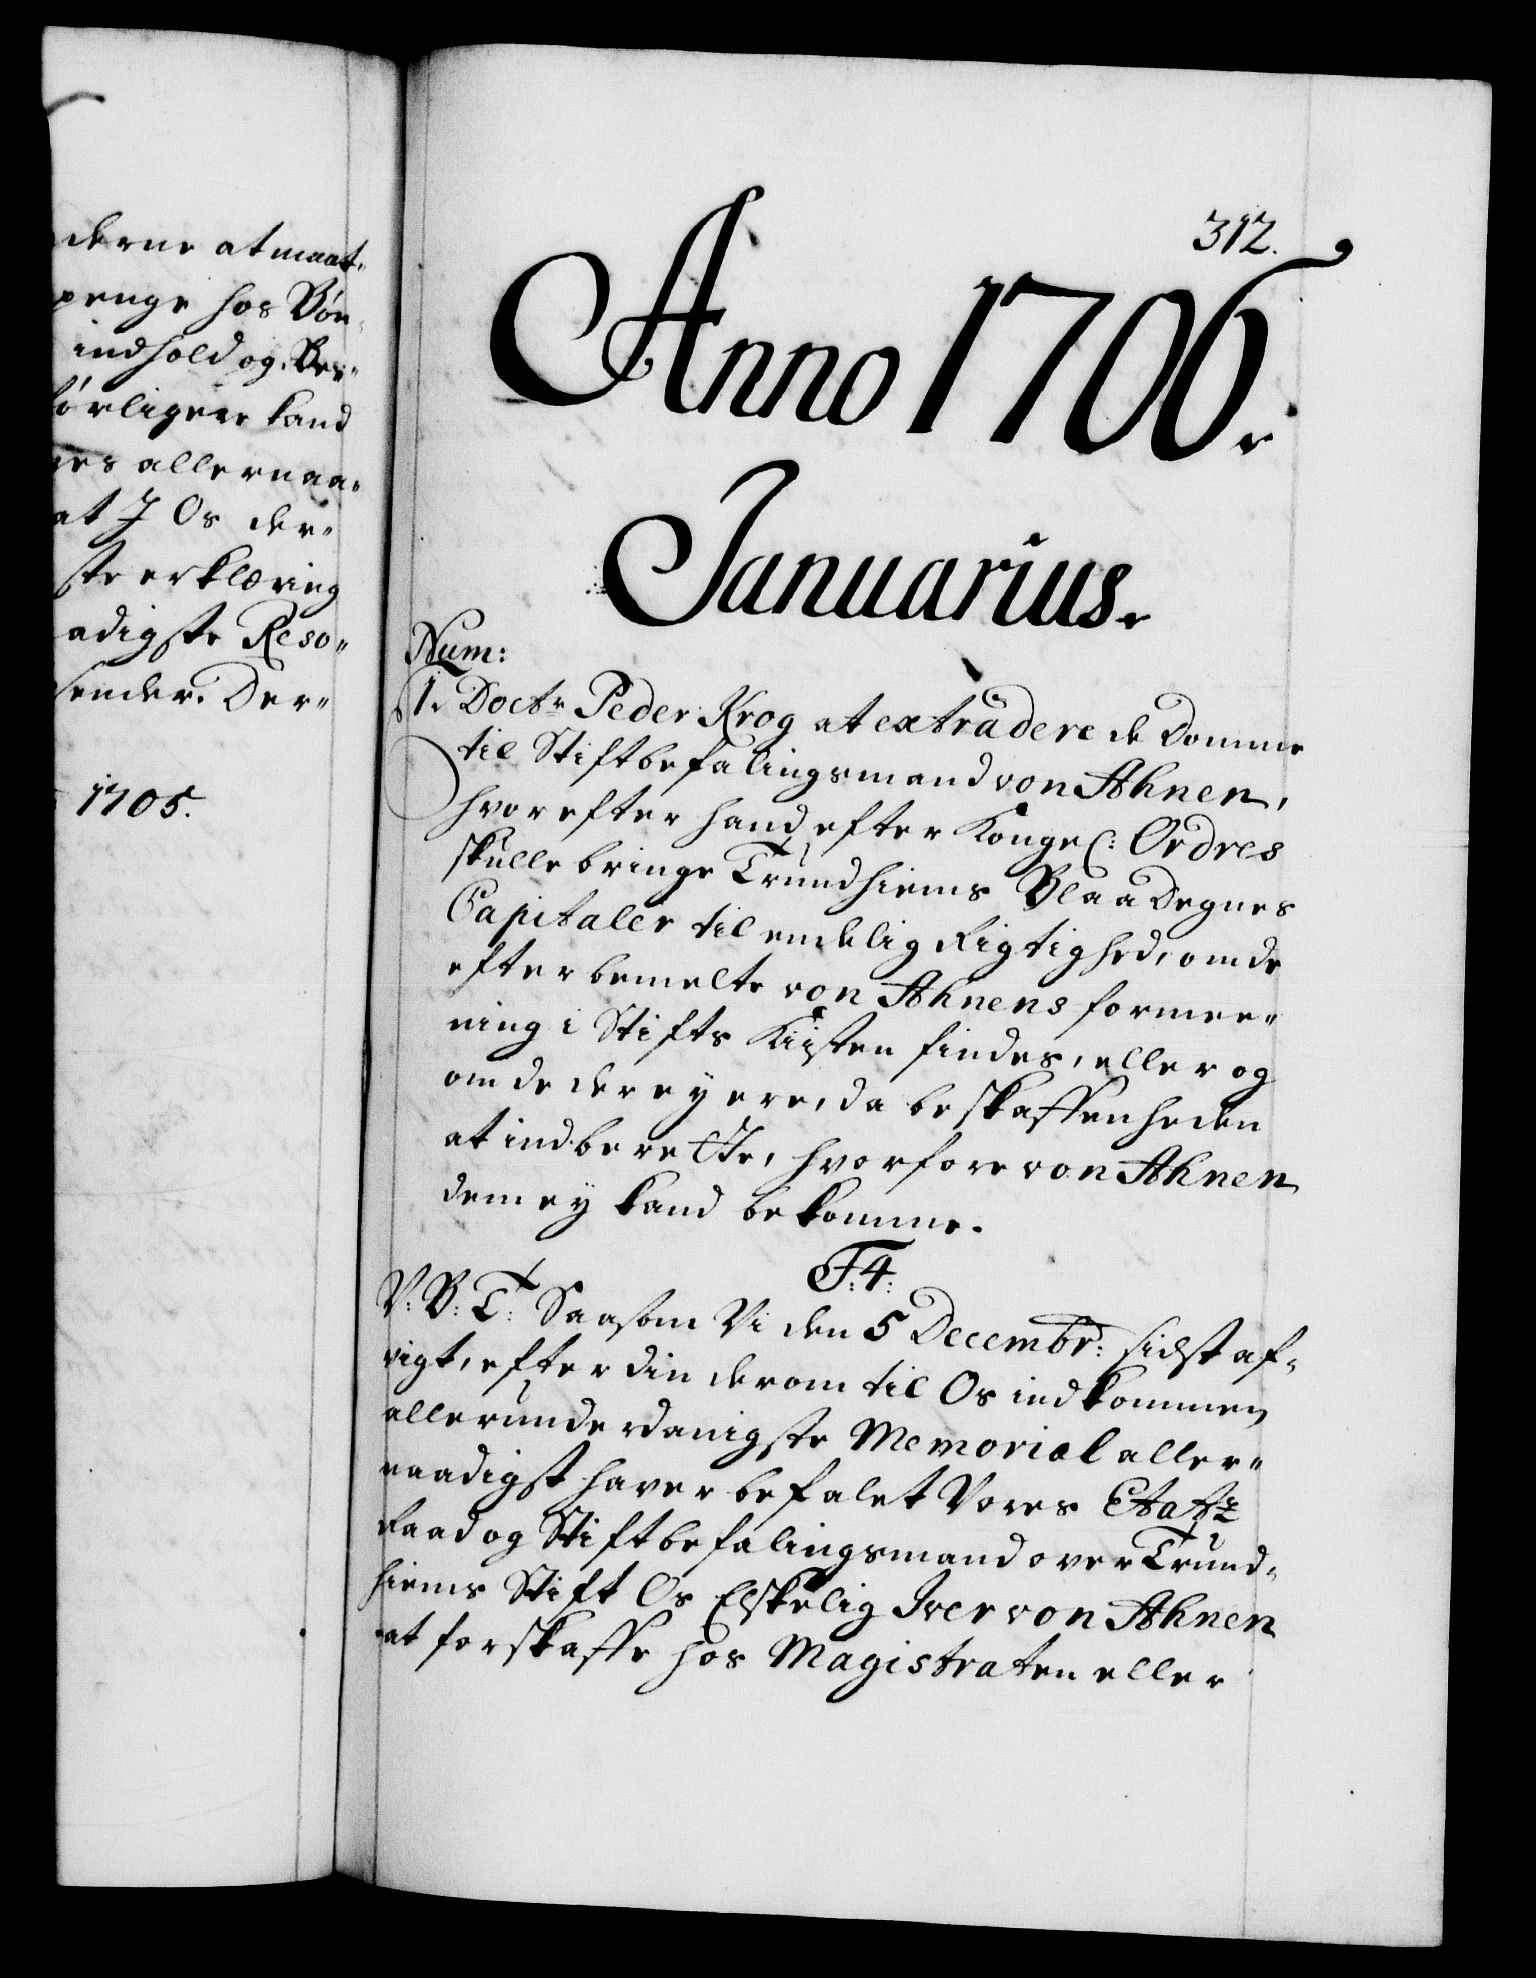 derne at maat-
penge hos Bön-
indhold og Bes-
förligere kand
res allernaa-
at I Os der-
ste erklæring
adigste Reso-
sender. Der-
1705.
312.
Anno 1706.
Januarius.
Num:
1. Doctr Peder Krog at extradere de Domme
til Stiftbefalingsmand von Ahnen,
hvorefter hand efter Kongel: Ordres
skulle bringe Trundhiems Vlaa Degnes
Capitaler til endelig Rigtighed, om de
efter bemelte von Ahnens formee-
ning i Stifts Kiisten findes, eller og
om de der ey ere, da beskaffenheden
at indberette, hvorfore von Ahnen
dem ey kand bekomme.
F: 4:
V: B: T: Saasom Vi den 5 Decembr: sidst af-
vigt, efter din derom til Os indkommen
allerunderdanigste Memorial aller-
naadigst haver befalet Vores Etats
Raad og Stiftbefalingsmand over Trund-
hiems Stift Os Elskelig Iver von Ahnen
at forskaffe hos Magistraten eller